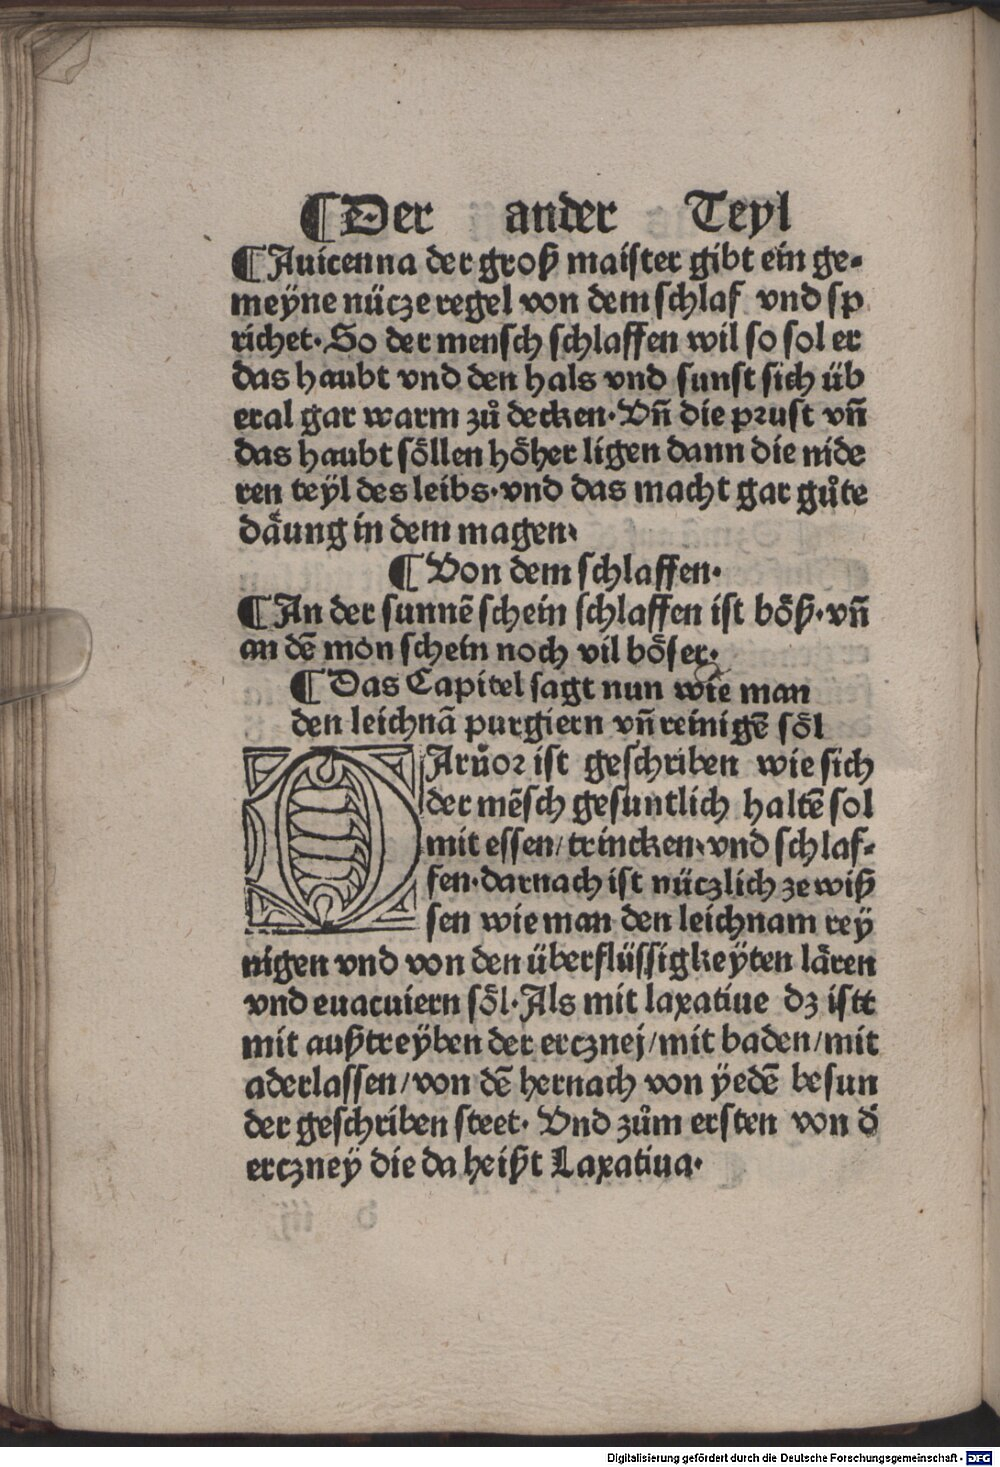 ¶Der ander Teyl
¶Auicenna der groß maister gibt ein ge-
meÿne nücze regel von dem schlaf vnd sp
richet. So der mensch schlaffen wil so sol er
das haubt vnd den hals vnd sunst sich üb
eral gar warm zů decken. Vñ die prust vñ
das haubt söllen höher ligen dann die nide
ren teÿl des leibs. vnd das macht gar gůte
däung in dem magen.
¶Von dem schlaffen.
¶An der sunnē schein schlaffen ist böß. vñ
an dē mon schein noch vil böser.
¶Das Capitel sagt nun wie man
den leichnā purgiern vñ reinigē söl
DArůor ist geschriben wie sich
der mēsch gesuntlich haltē sol
mit essen/trincken. vnd schlaf-
fen. darnach ist nüczlich ze wiß
sen wie man den leichnam reÿ
nigen vnd von den überflüssigkeÿten lären
vnd euacuiern söl. Als mit laxatiue dz istt
mit außtreÿben der ercznej/mit baden/mit
aderlassen/von dē hernach von ÿedē besun
der geschriben steet. Vnd zům ersten von d̄
erczneÿ die da heißt Laxatiua.
Digitalisierung gefördert durch die Deutsche Forschungsgemeinschaft - DFG